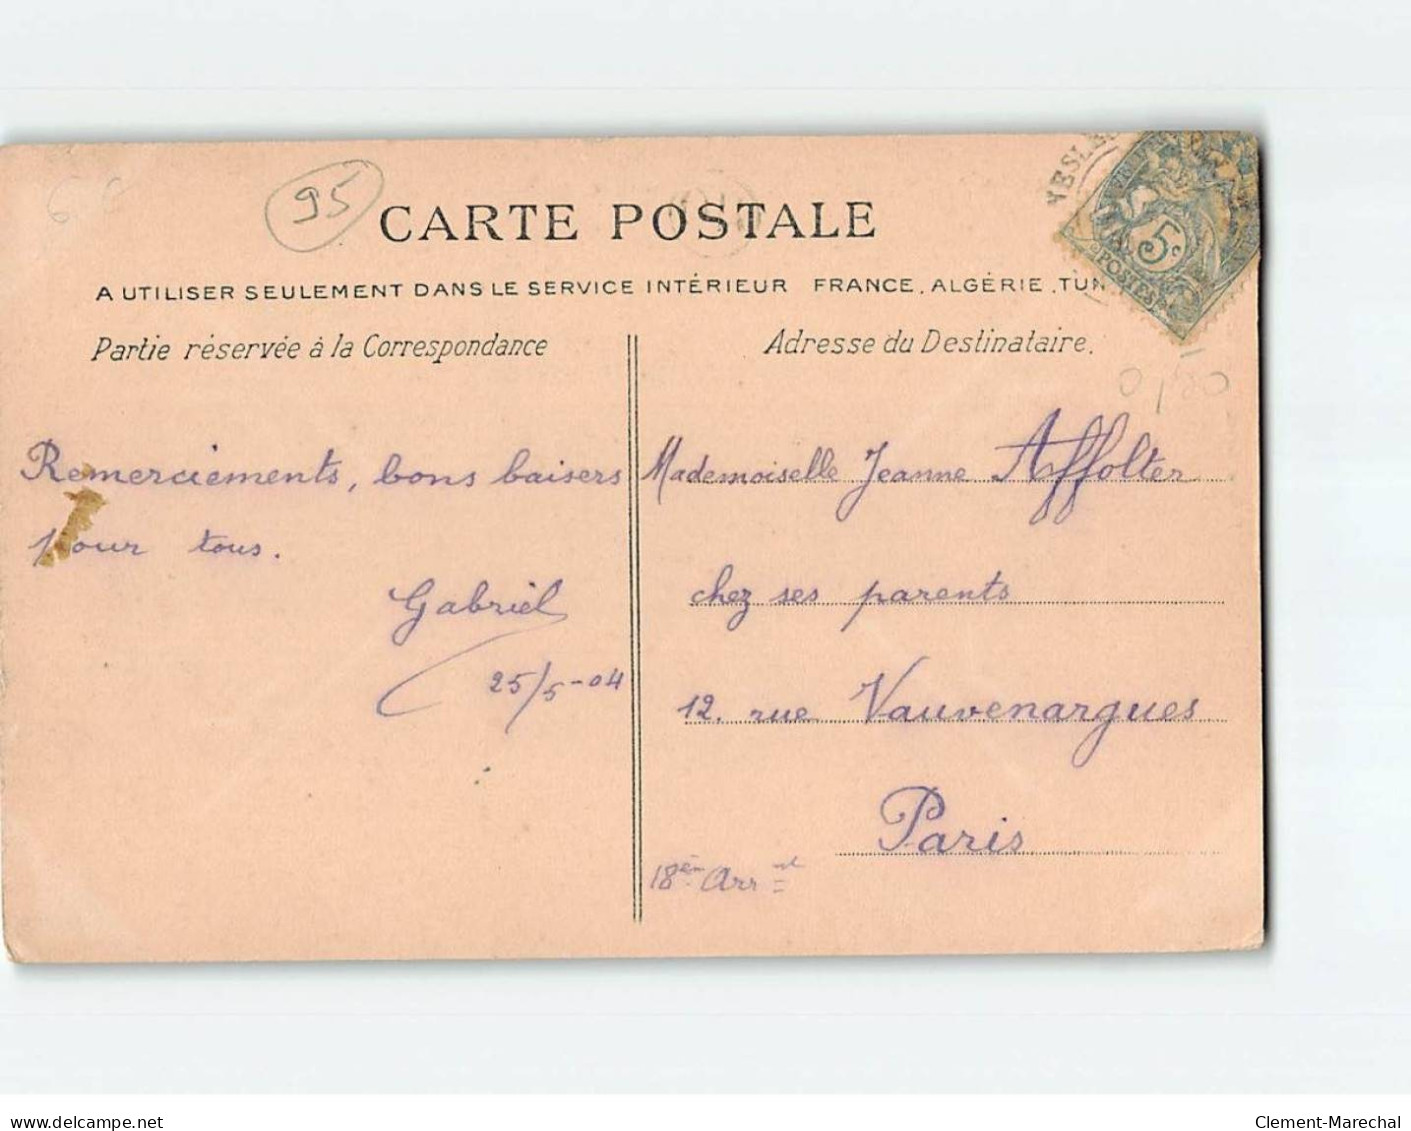 95
CARTE POSTALE
A UTILISER SEULEMENT DANS LE SERVICE INTÉRIEUR FRANCE, ALGÉRIE, TUN
Partie réservée à la Correspondance
Adresse du Destinataire.
5c
POSTES
0,80
Remerciements, bons baisers
pour tous.
Gabriel
25/5-04
Mademoiselle Jeanne Affolter
chez ses parents
12. rue Vauvenargues
Paris
18èm Arrd
delcampe.net
Clement-Marechal